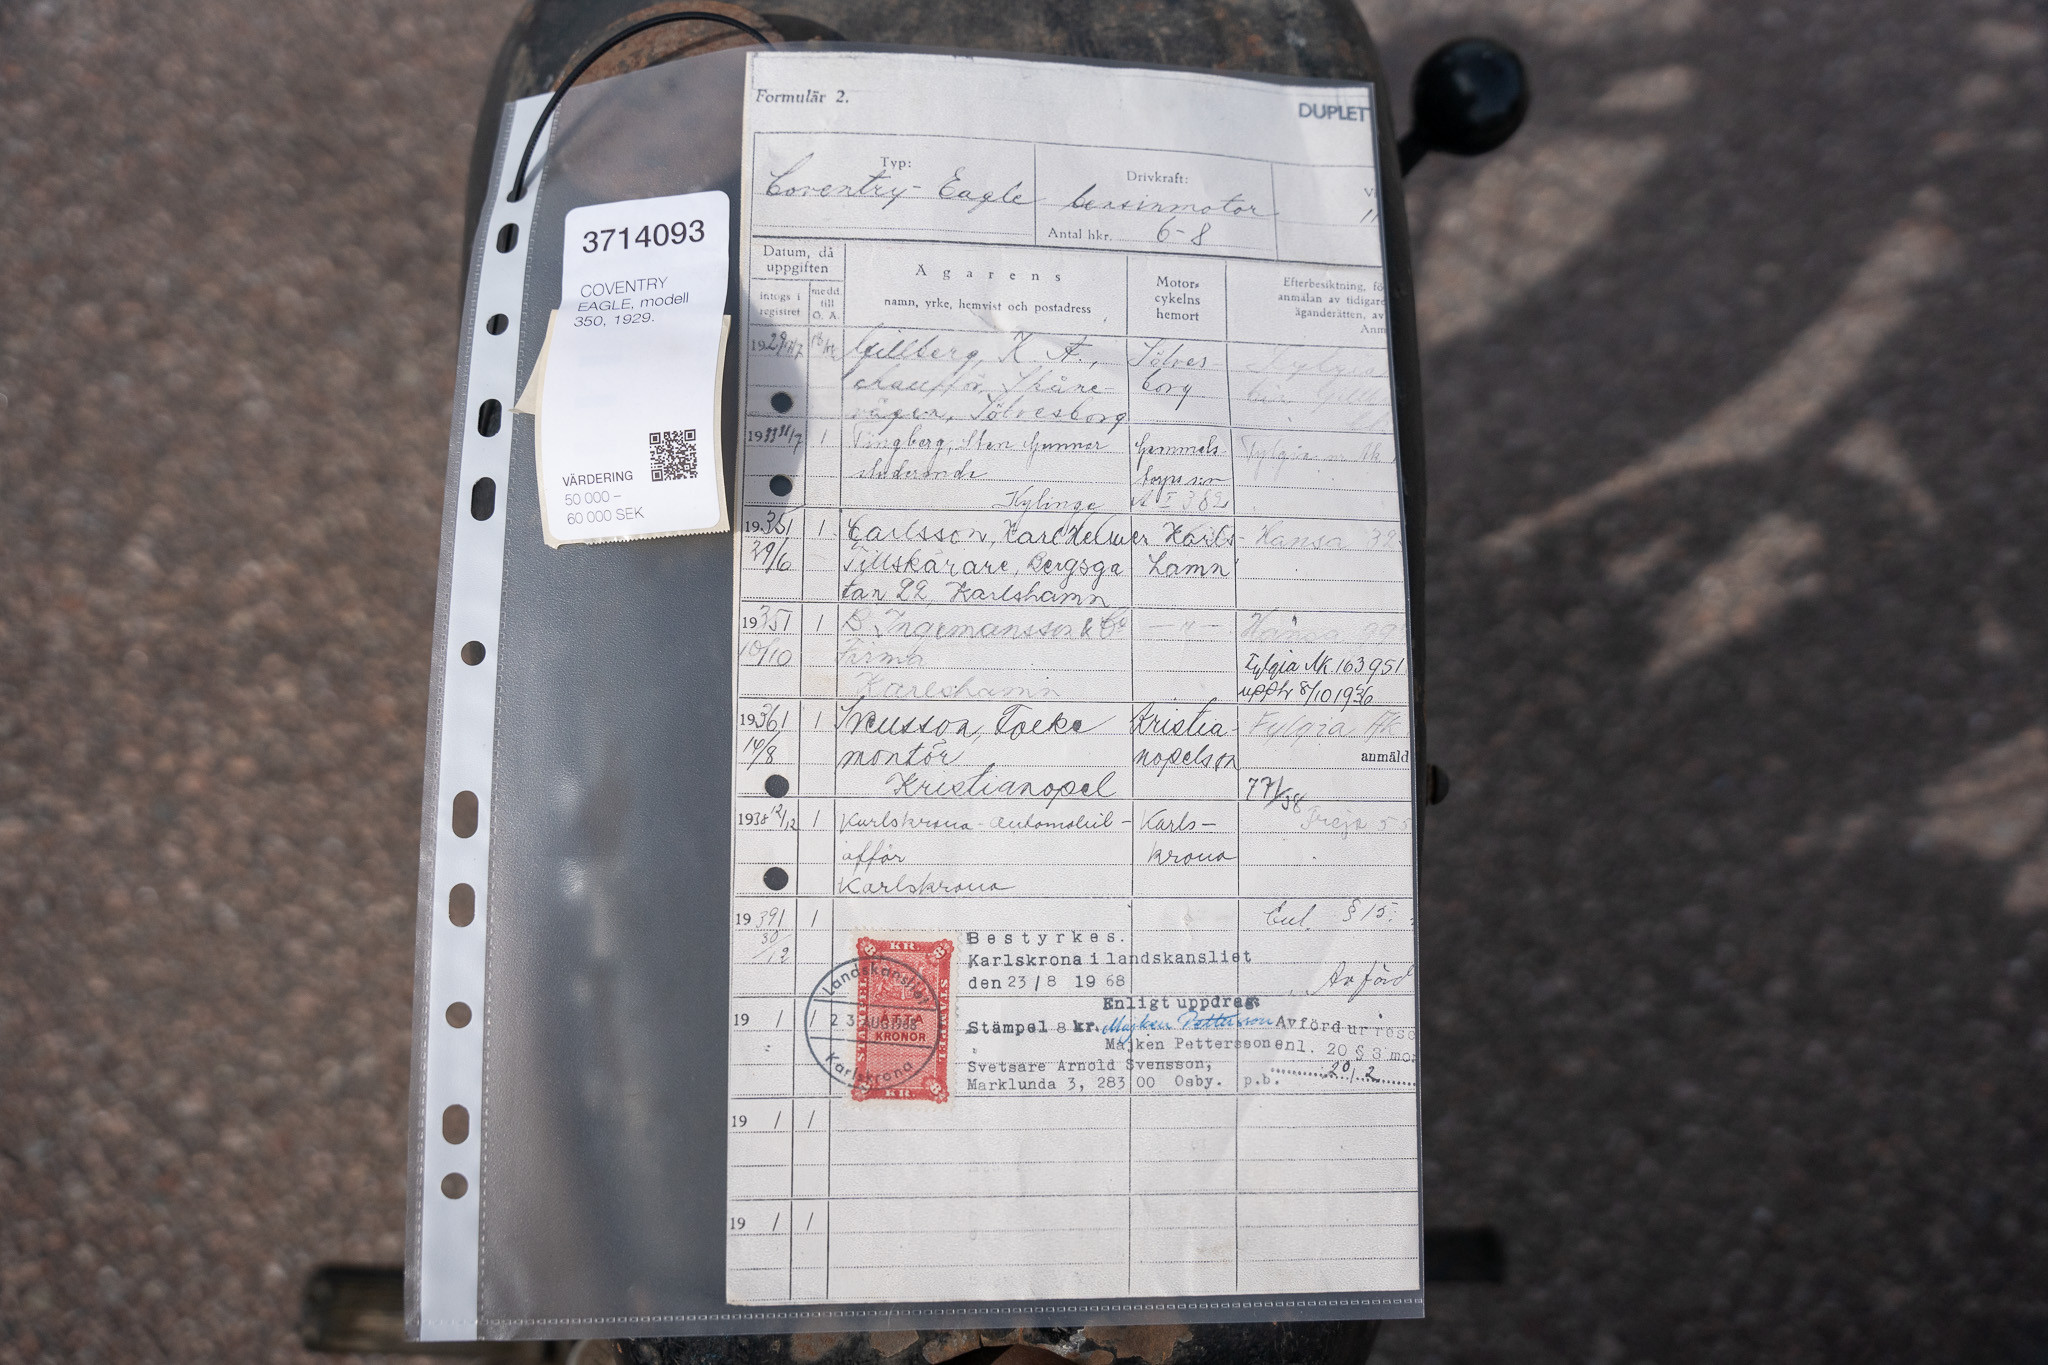 3714093
COVENTRY
EAGLE, modell
350, 1929.
VÄRDERING
50 000 –
60 000 SEK
Formulär 2.
DUPLETT
Typ:
Coventry-Eagle
Drivkraft:
bensinmotor
Antal hkr. 6-8
Datum, då
uppgiften
intogs i
registret
medd.
till
Ö. Ä.
Ägarens
namn, yrke, hemvist och postadress
Motor-
cykelns
hemort
Efterbesiktning, fö
anmälan av tidigare
äganderätten, av
Anm
1929 17/7
Gillberg, K. A.,
chaufför, Skåne-
vägen, Sölvesborg
Sölves
borg
Fylgia
1933 31/7 1
Tingberg, Sten Gunnar
studerande
Kylinge
Gammals-
torps s:n
Fylgia
1935 1
29/6
Carlsson, Karl Helmer
Tillskärare, Bergsga
tan 22, Karlshamn
Karls-
hamn
Hansa
1935 1
10/10
B. Ingemansson & Co
Firma
Karlshamn
— " —
Hansa
Fylgia Nk 163951
upph 8/10 1936
1936 1
14/8
Svensson, Tocke
montör
Kristianopel
Kristia-
nopels sn
Fylgia
anmäld
1938 12/12 1
Karlskrona-automobil-
affär
Karlskrona
Karls-
krona
Freja 55
1939 1
30/12
Enl. § 15.
Avförd
Bestyrkes.
Karlskrona i landskansliet
den 23/8 1968
Enligt uppdrag:
Stämpel 8 kr. Majken Pettersson
Majken Pettersson
Svetsare Arnold Svensson,
Marklunda 3, 283 00 Osby.
Avförd ur
enl. 20 § 3 mo
p.b.
KR.
STÄMPEL
ÅTTA
KRONOR
KR.
Landskansliet
23 AUG 1968
Karlskrona
19 / /
19 / /
19 / /